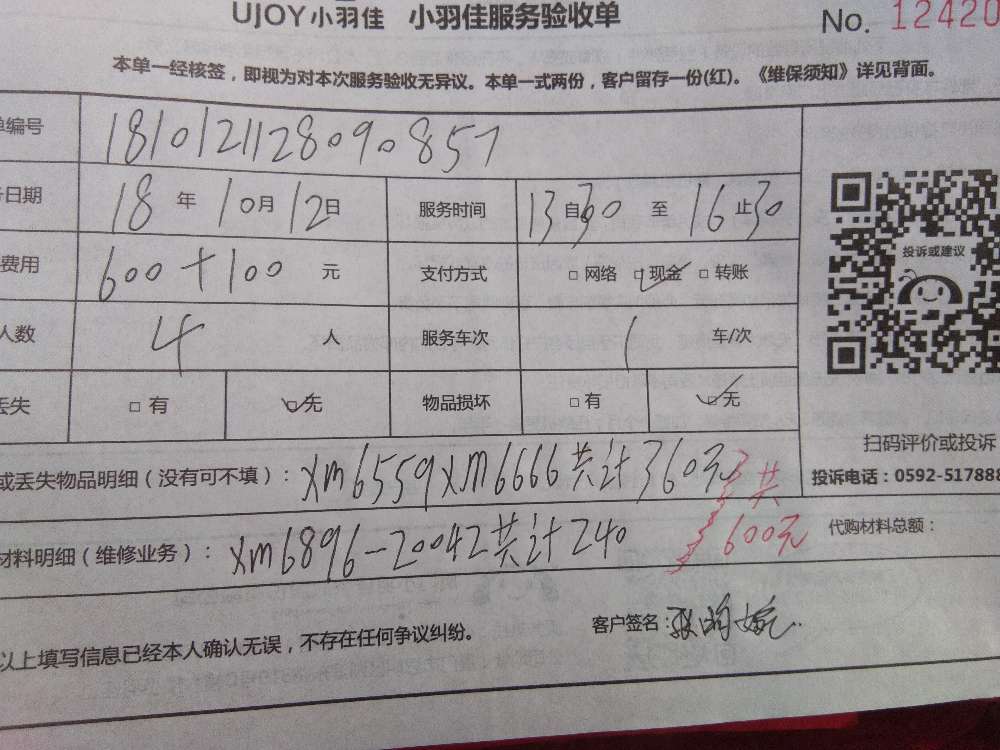 UJOY小羽佳 小羽佳服务验收单 No. 12420
本单一经核签，即视为对本次服务验收无异议。本单一式两份，客户留存一份(红)。《维保须知》详见背面。
单编号 181012112809 0857
日期 18年 10月 12日 服务时间 13自30 至 16止30
费用 600+100 元 支付方式 □网络 ☑现金 □转账
人数 4 人 服务车次 1 车/次
丢失 □有 ☑无 物品损坏 □有 ☑无
投诉或建议
扫码评价或投诉
投诉电话：0592-517888
或丢失物品明细（没有可不填）：xm6559xm6666共计360元
共600元
材料明细（维修业务）：xm6896-20042共计240
代购材料总额：
以上填写信息已经本人确认无误，不存在任何争议纠纷。 客户签名：